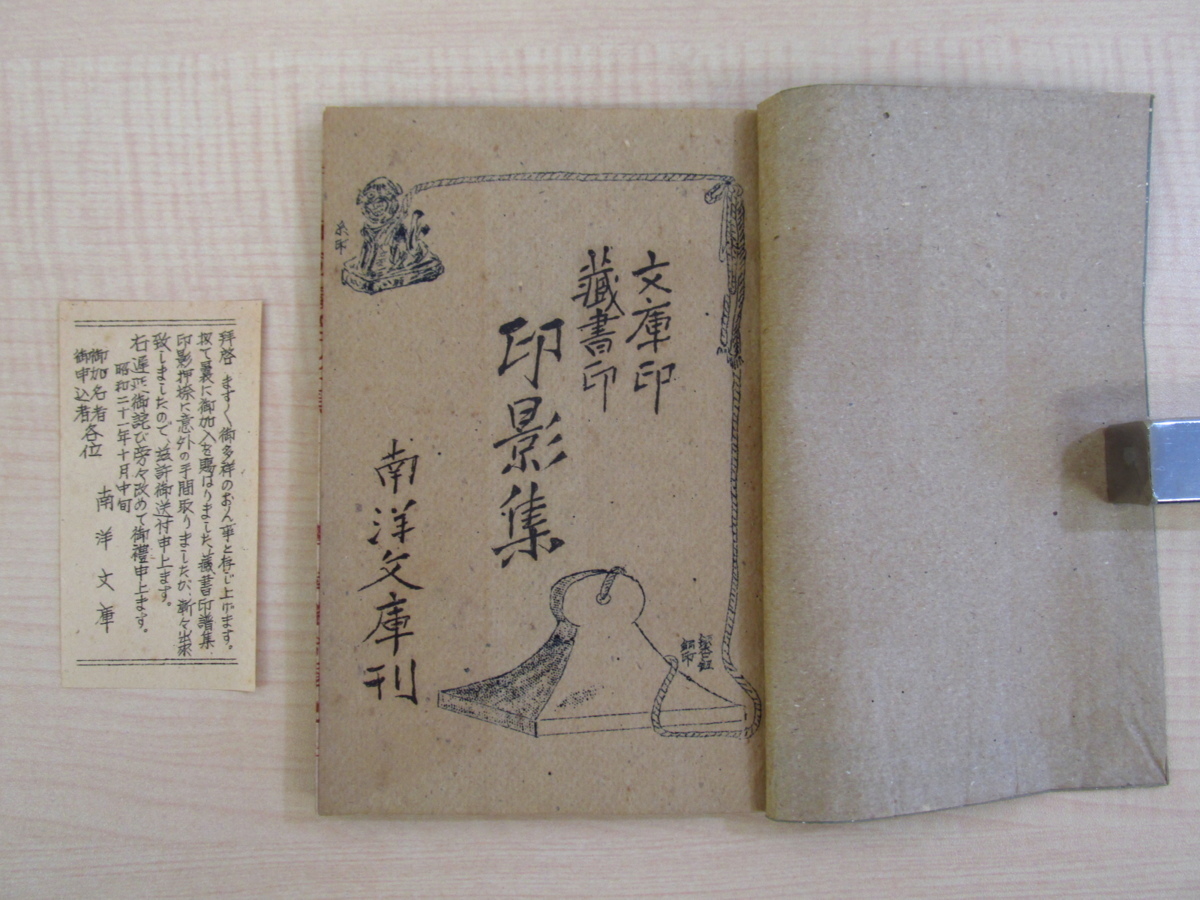 文庫印
藏書印
印影集
南洋文庫刊
糸印
鈕
銅印
拝啓 ますく御多祥のおん事と存じ上げます。
扨て曩に御加入を賜はりました、藏書印譜集
印影押捺に意外の手間取りましたが、漸々出來
致しましたので、茲許御送付申上ます。
右遅延御詫び旁々改めて御禮申上ます。
昭和二十一年十月中旬
南洋文庫
御加名者
御申込者各位